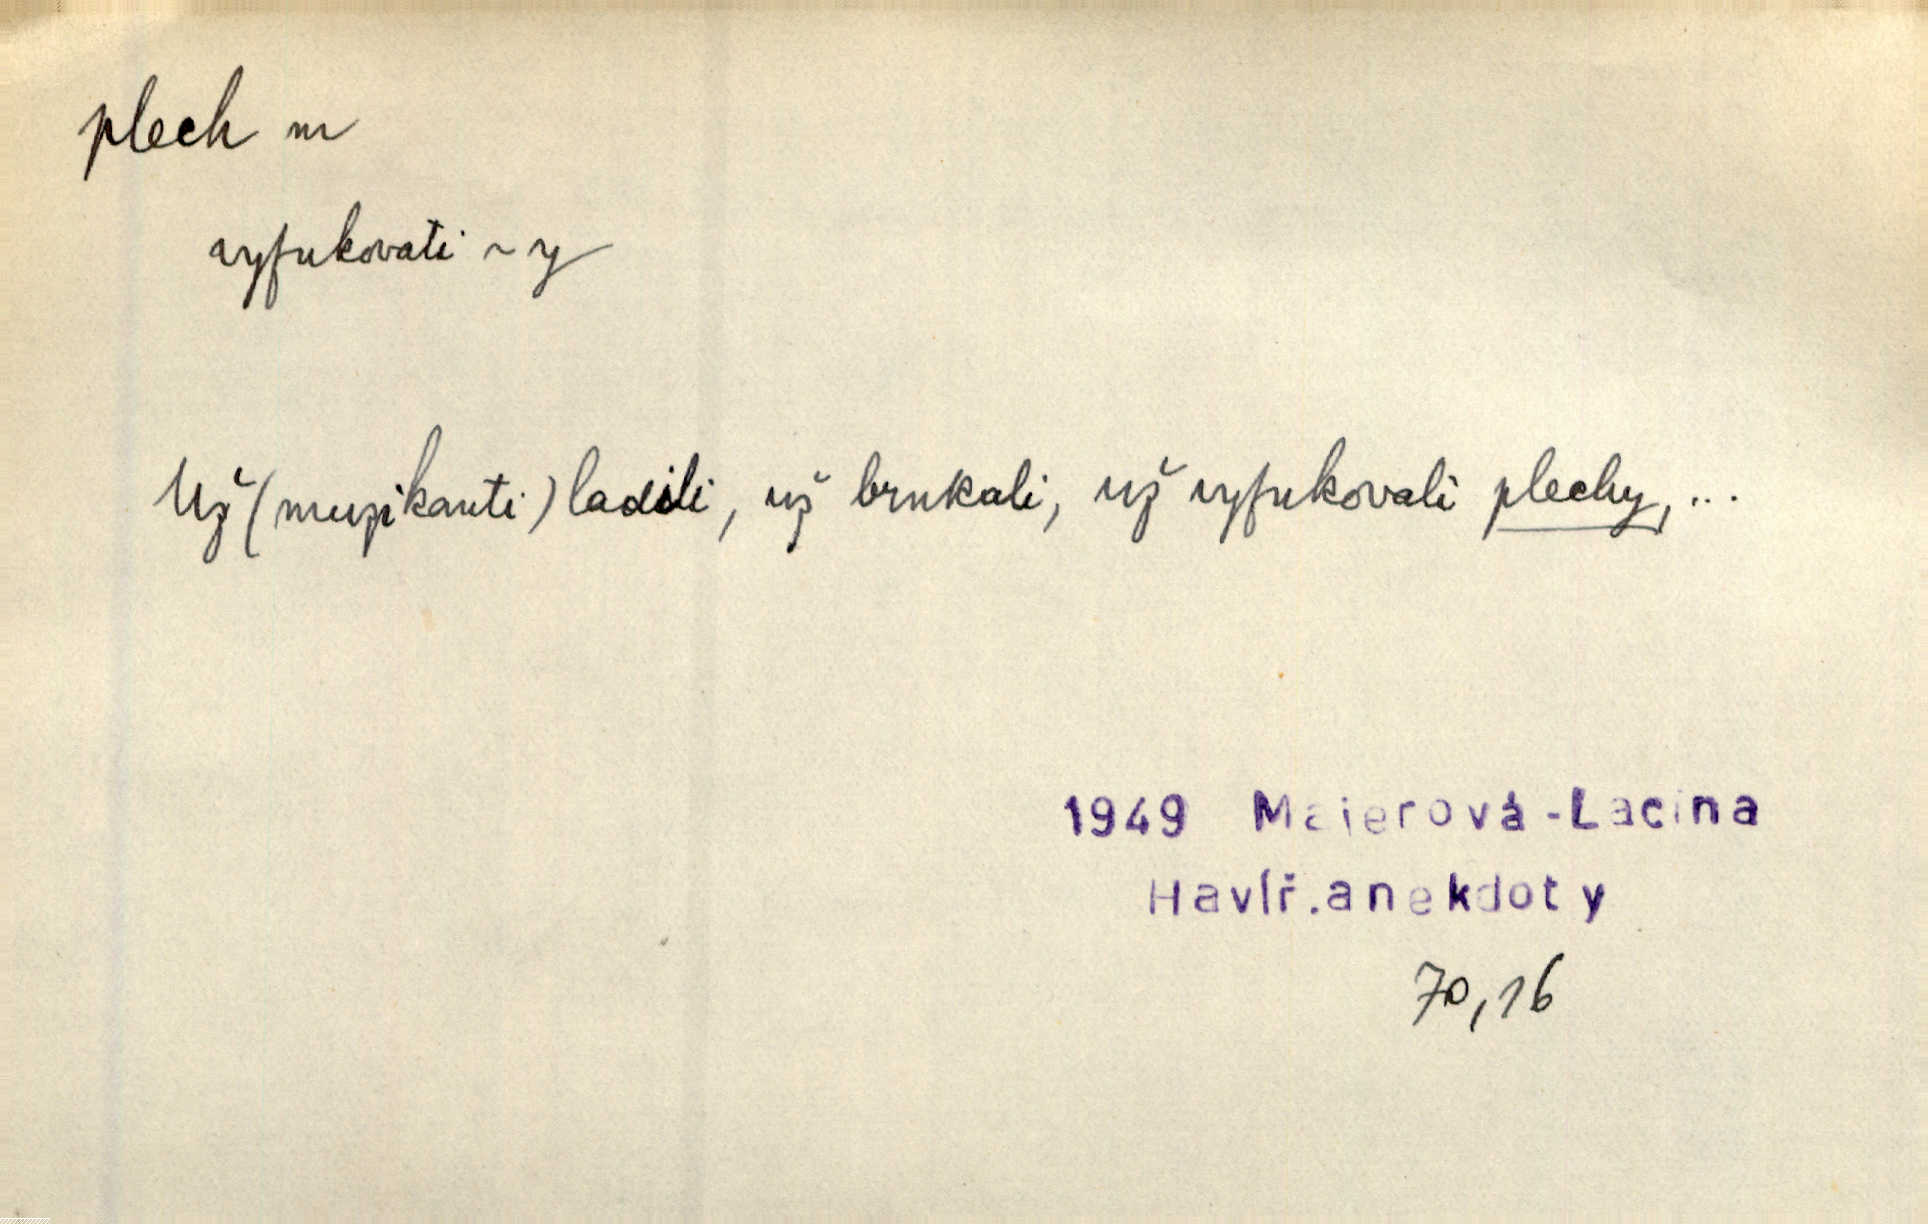 plech m
vyfukovati ~y
Už (muzikanti) ladili, už brnkali, už vyfukovali plechy, ...
1949 Maierová-Lacina
Havíř.anekdoty
70,16